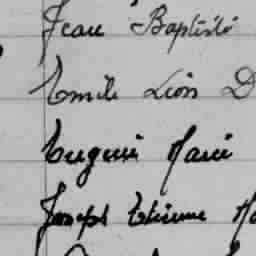 Jean Baptiste
Emile Léon D
Eugène Marie
Joseph Etienne Ma